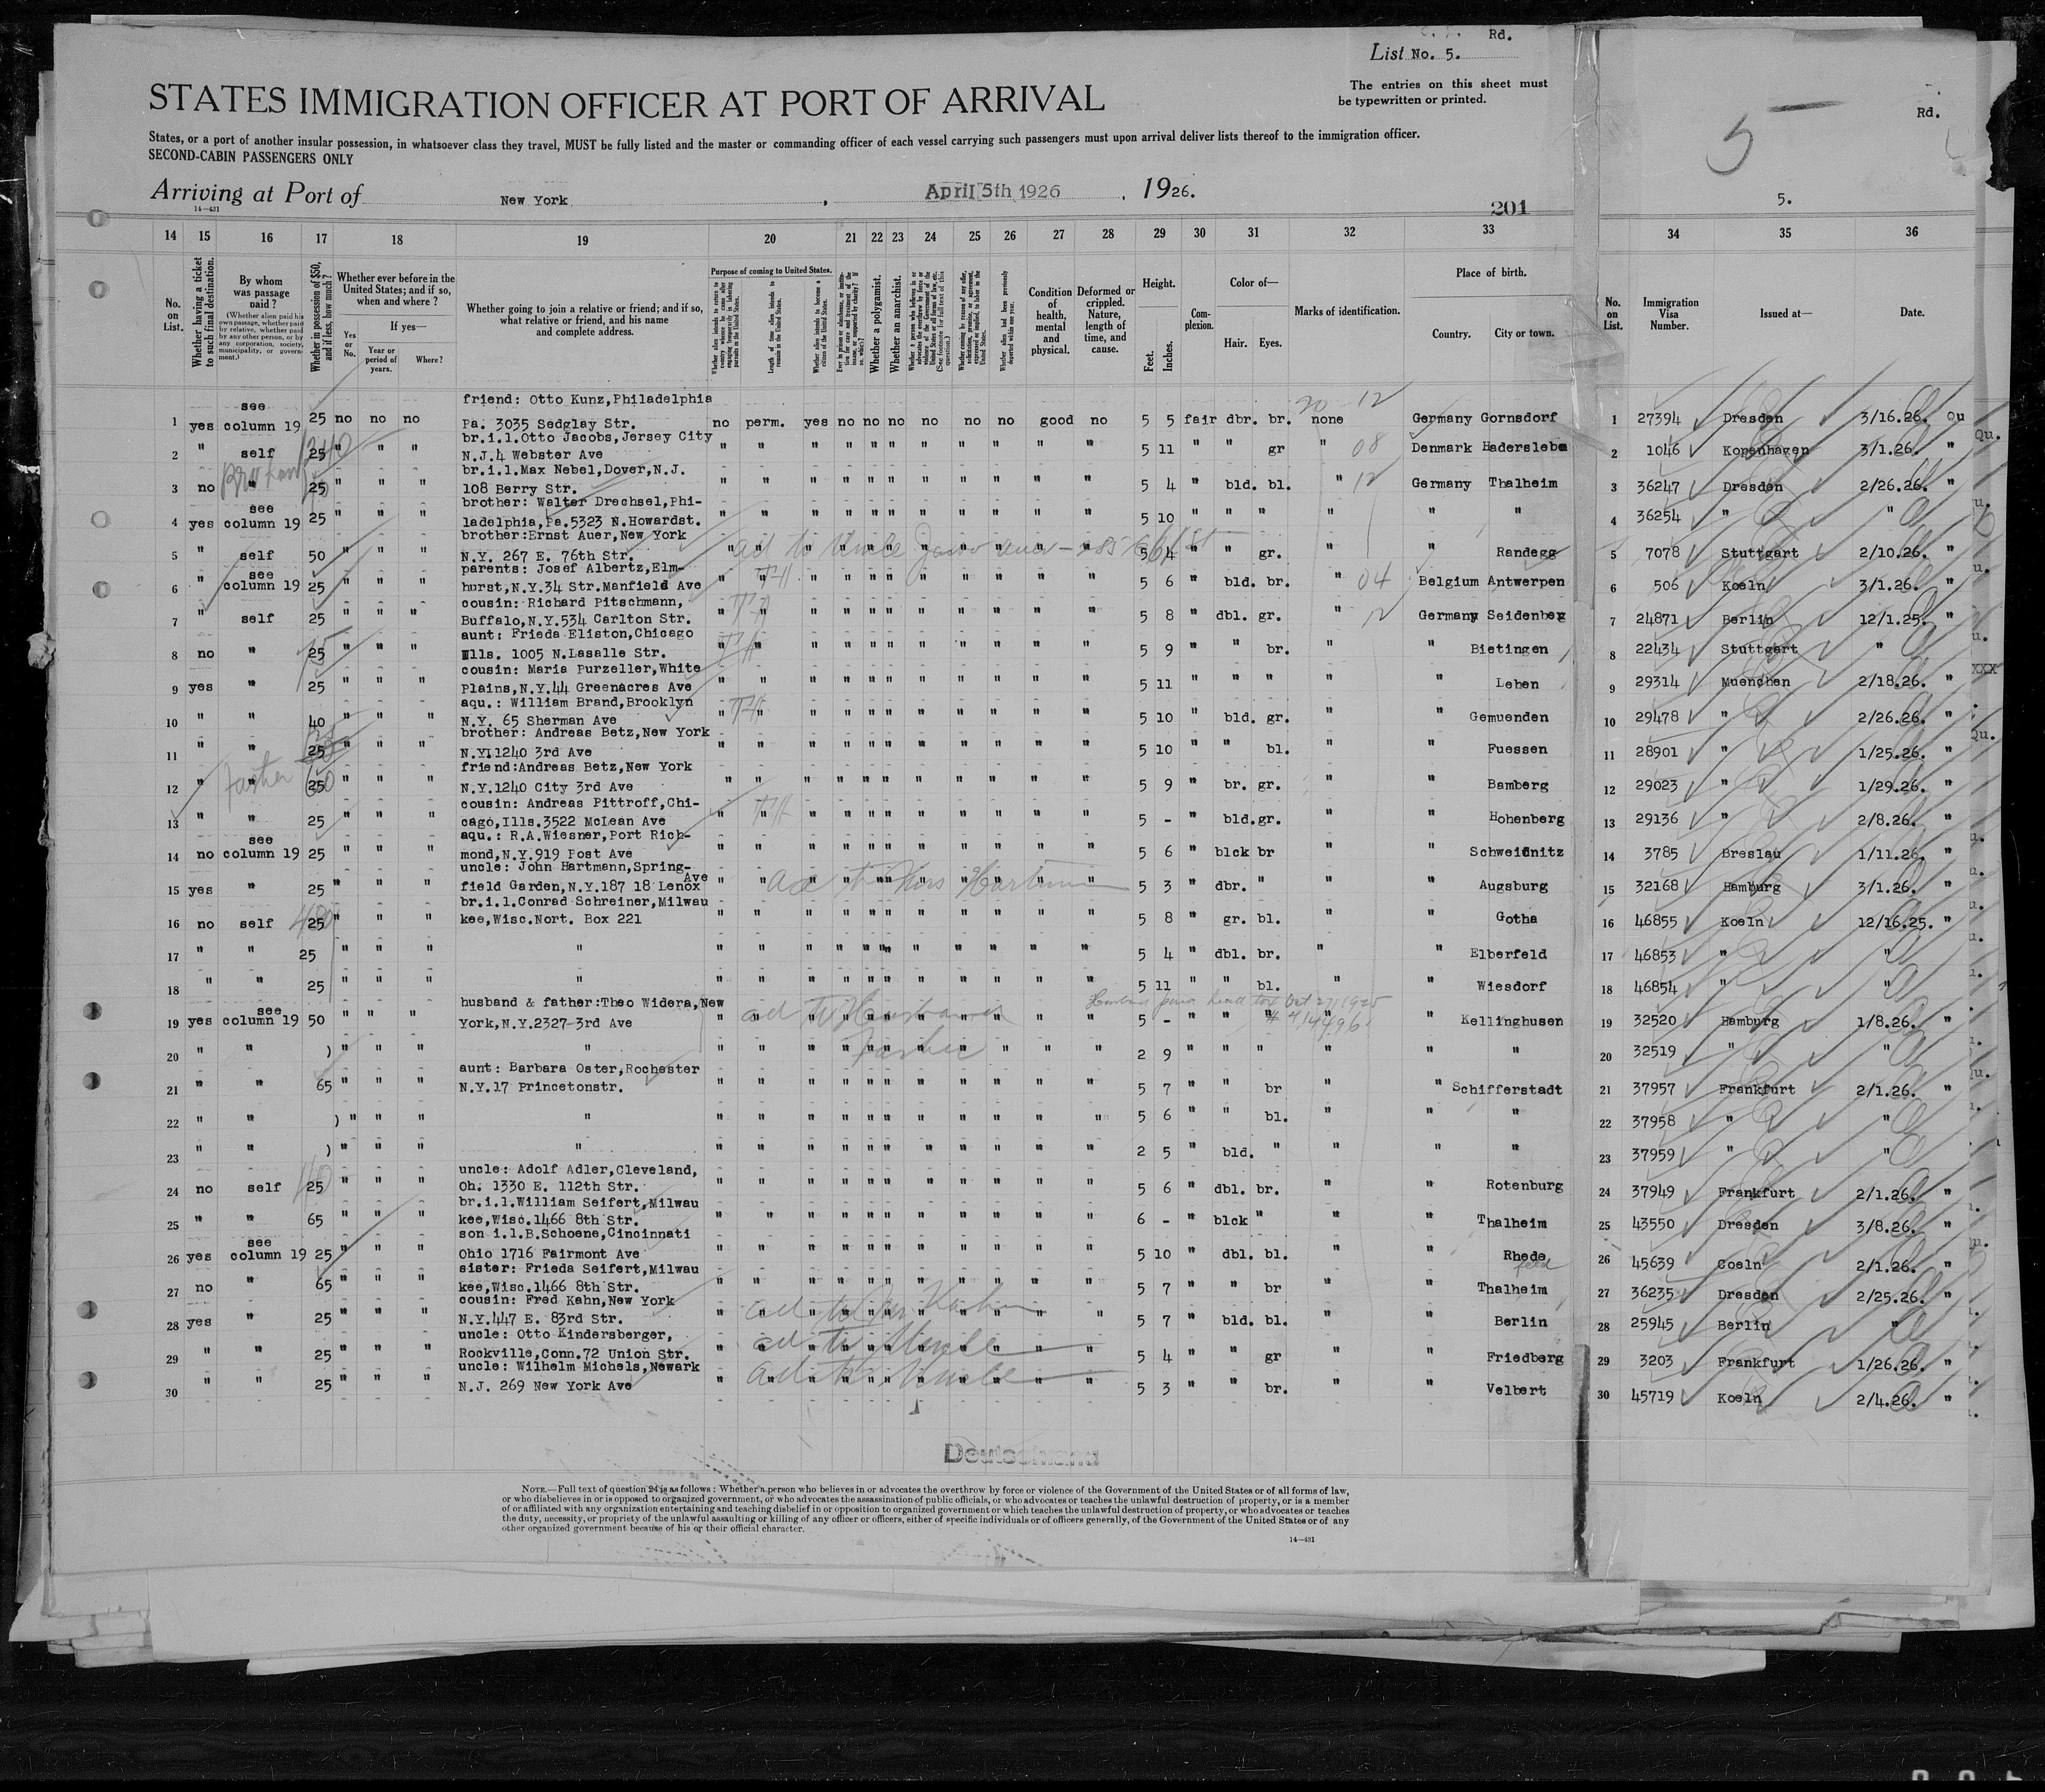 Rd.
List No. 5.
The entries on this sheet must
be typewritten or printed.
STATES IMMIGRATION OFFICER AT PORT OF ARRIVAL
States, or a port of another insular possession, in whatsoever class they travel, MUST be fully listed and the master or commanding officer of each vessel carrying such passengers must upon arrival deliver lists thereof to the immigration officer.
SECOND-CABIN PASSENGERS ONLY
Arriving at Port of New York, April 5th 1926, 1926.
14-431
201
5
Rd.
5.
14 15 16 17 18 19 20 21 22 23 24 25 26 27 28 29 30 31 32 33 34 35 36
No. on List.
Whether having a ticket to such final destination.
By whom was passage paid?
(Whether alien paid his own passage, whether paid by relative, whether paid by any other person, or by any corporation, society, municipality, or government.)
Whether in possession of $50, and if less, how much?
Whether ever before in the United States; and if so, when and where?
Yes or No.
If yes—
Year or period of years.
Where?
Whether going to join a relative or friend; and if so, what relative or friend, and his name and complete address.
Purpose of coming to United States.
Length of time alien intends to remain in the United States.
Whether alien intends to become a citizen of the United States.
Whether a polygamist.
Whether an anarchist.
Condition of health, mental and physical.
Deformed or crippled. Nature, length of time, and cause.
Height.
Feet.
Inches.
Complexion.
Color of—
Hair. Eyes.
Marks of identification.
Place of birth.
Country. City or town.
No. on List.
Immigration Visa Number.
Issued at—
Date.
friend: Otto Kunz,Philadelphia
1 yes see column 19 25 no no no Pa. 3035 Sedglay Str. no perm. yes no no no no no no good no 5 5 fair dbr. br. none Germany Gornsdorf 1 27394 Dresden 3/16.26. Qu
br.i.l.Otto Jacobs,Jersey City
2 " self 25 " " " N.J.4 Webster Ave " " " " " " " " " " " 5 11 " " gr " 08 Denmark 2 1046 Kopenhagen 3/1.26. "
br.i.l.Max Nebel,Dover,N.J.
3 no " 25 " " " 108 Berry Str. " " " " " " " " " " " 5 4 " bld. bl. " 12 Germany Thalheim 3 36247 Dresden 2/26.26. "
brother: Walter Drechsel,Phi-
4 yes see column 19 25 " " " ladelphia,Pa.5323 N.Howardst. " " " " " " " " " " " 5 10 " " " " " " 4 36254 " " "
brother:Ernst Auer,New York
5 " self 50 " " " N.Y. 267 E. 76th Str. " " " " " " " " " " " 5 4 " " gr. " " Randegg 5 7078 Stuttgart 2/10.26. "
parents: Josef Albertz,Elm-
6 " see column 19 25 " " " hurst,N.Y.34 Str.Manfield Ave " " " " " " " " " " " 5 6 " bld. br. " 04 Belgium Antwerpen 6 506 Koeln 3/1.26. "
cousin: Richard Pitschmann,
7 " self 25 " " " Buffalo,N.Y.534 Carlton Str. " " " " " " " " " " " 5 8 " dbl. gr. " Germany Seidenberg 7 24871 Berlin 12/1.25. "
aunt: Frieda Eliston,Chicago
8 no " 25 " " " Ills. 1005 N.Lasalle Str. " " " " " " " " " " " 5 9 " " br. " " Bietingen 8 22434 Stuttgart " "
cousin: Maria Purzeller,White
9 yes " 25 " " " Plains,N.Y.44 Greenacres Ave " " " " " " " " " " " 5 11 " " " " " Leben 9 29314 Muenchen 2/18.26. "
aqu.: William Brand,Brooklyn
10 " " 40 " " " N.Y. 65 Sherman Ave " " " " " " " " " " " 5 10 " bld. gr. " " Gemuenden 10 29478 " 2/26.26. "
brother: Andreas Betz,New York
11 " " 25 " " " N.Y.1240 3rd Ave " " " " " " " " " " " 5 10 " " bl. " " Fuessen 11 28901 " 1/25.26. "
friend:Andreas Betz,New York
12 " " father 25 " " " N.Y.1240 City 3rd Ave " " " " " " " " " " " 5 9 " br. gr. " " Bamberg 12 29023 " 1/29.26. "
cousin: Andreas Pittroff,Chi-
13 " " 25 " " " cago,Ills.3522 McLean Ave " " " " " " " " " " " 5 - " bld.gr. " " Hohenberg 13 29136 " 2/8.26. "
aqu.: R.A.Wiesner,Port Rich-
14 no see column 19 25 " " " mond,N.Y.919 Post Ave " " " " " " " " " " " 5 6 " blck br " " Schweidnitz 14 3785 Breslau 1/11.26. "
uncle: John Hartmann,Spring-
15 yes " 25 " " " field Garden,N.Y.187 18 Lenox Ave " " " " " " " " " " " 5 3 " dbr. " " " Augsburg 15 32168 Hamburg 3/1.26. "
br.i.l.Conrad Schreiner,Milwau
16 no self 25 " " " kee,Wisc.Nort. Box 221 " " " " " " " " " " " 5 8 " gr. bl. " " Gotha 16 46855 Koeln 12/16.25. "
17 " " 25 " " " " " " " " " " " " " " " 5 4 " dbl. br. " " Elberfeld 17 46853 " " "
18 " " 25 " " " " " " " " " " " " " " " 5 11 " " bl. " " Wiesdorf 18 46854 " " "
husband & father:Theo Widera,New
19 yes see column 19 50 " " " York,N.Y.2327-3rd Ave " " " " " " " " " " " 5 - " " " " " Kellinghusen 19 32520 Hamburg 1/8.26. "
20 " " ) " " " " " " " " " " " " " " " 2 9 " " " " " " 20 32519 " " "
aunt: Barbara Oster,Rochester
21 " " 65 " " " N.Y.17 Princetonstr. " " " " " " " " " " " 5 7 " " br " " Schifferstadt 21 37957 Frankfurt 2/1.26. "
22 " " ) " " " " " " " " " " " " " " " 5 6 " " bl. " " " 22 37958 " " "
23 " " ) " " " " " " " " " " " " " " " 2 5 " bld. " " " " 23 37959 " " "
uncle: Adolf Adler,Cleveland,
24 no self 25 " " " Oh. 1330 E. 112th Str. " " " " " " " " " " " 5 6 " dbl. br. " " Rotenburg 24 37949 Frankfurt 2/1.26. "
br.i.l.William Seifert,Milwau
25 " " 65 " " " kee,Wisc.1466 8th Str. " " " " " " " " " " " 6 - " blck " " " Thalheim 25 43550 Dresden 3/8.26. "
son i.l.B.Schoene,Cincinnati
26 yes see column 19 25 " " " Ohio 1716 Fairmont Ave " " " " " " " " " " " 5 10 " dbl. bl. " " Rhede 26 45639 Coeln 2/1.26. "
sister: Frieda Seifert,Milwau
27 no " 65 " " " kee,Wisc.1466 8th Str. " " " " " " " " " " " 5 7 " " br " " Thalheim 27 36235 Dresden 2/25.26. "
cousin: Fred Kahn,New York
28 yes " 25 " " " N.Y.447 E. 83rd Str. " " " " " " " " " " " 5 7 " bld. bl. " " Berlin 28 25945 Berlin " "
uncle: Otto Kindersberger,
29 " " 25 " " " Rockville,Conn.72 Union Str. " " " " " " " " " " " 5 4 " " gr " " Friedberg 29 3203 Frankfurt 1/26.26. "
uncle: Wilhelm Michels,Newark
30 " " 25 " " " N.J. 269 New York Ave " " " " " " " " " " " 5 3 " " br. " " Velbert 30 45719 Koeln 2/4.26. "
Deutschland
NOTE.—Full text of question 24 is as follows: Whether a person who believes in or advocates the overthrow by force or violence of the Government of the United States or of all forms of law,
or who disbelieves in or is opposed to organized government, or who advocates the assassination of public officials, or who advocates or teaches the unlawful destruction of property, or is a member
of or affiliated with any organization entertaining and teaching disbelief in or opposition to organized government or which teaches the unlawful destruction of property, or who advocates or teaches
the duty, necessity, or propriety of the unlawful assaulting or killing of any officer or officers, either of specific individuals or of officers generally, of the Government of the United States or of any
other organized government because of his or their official character.
14-431